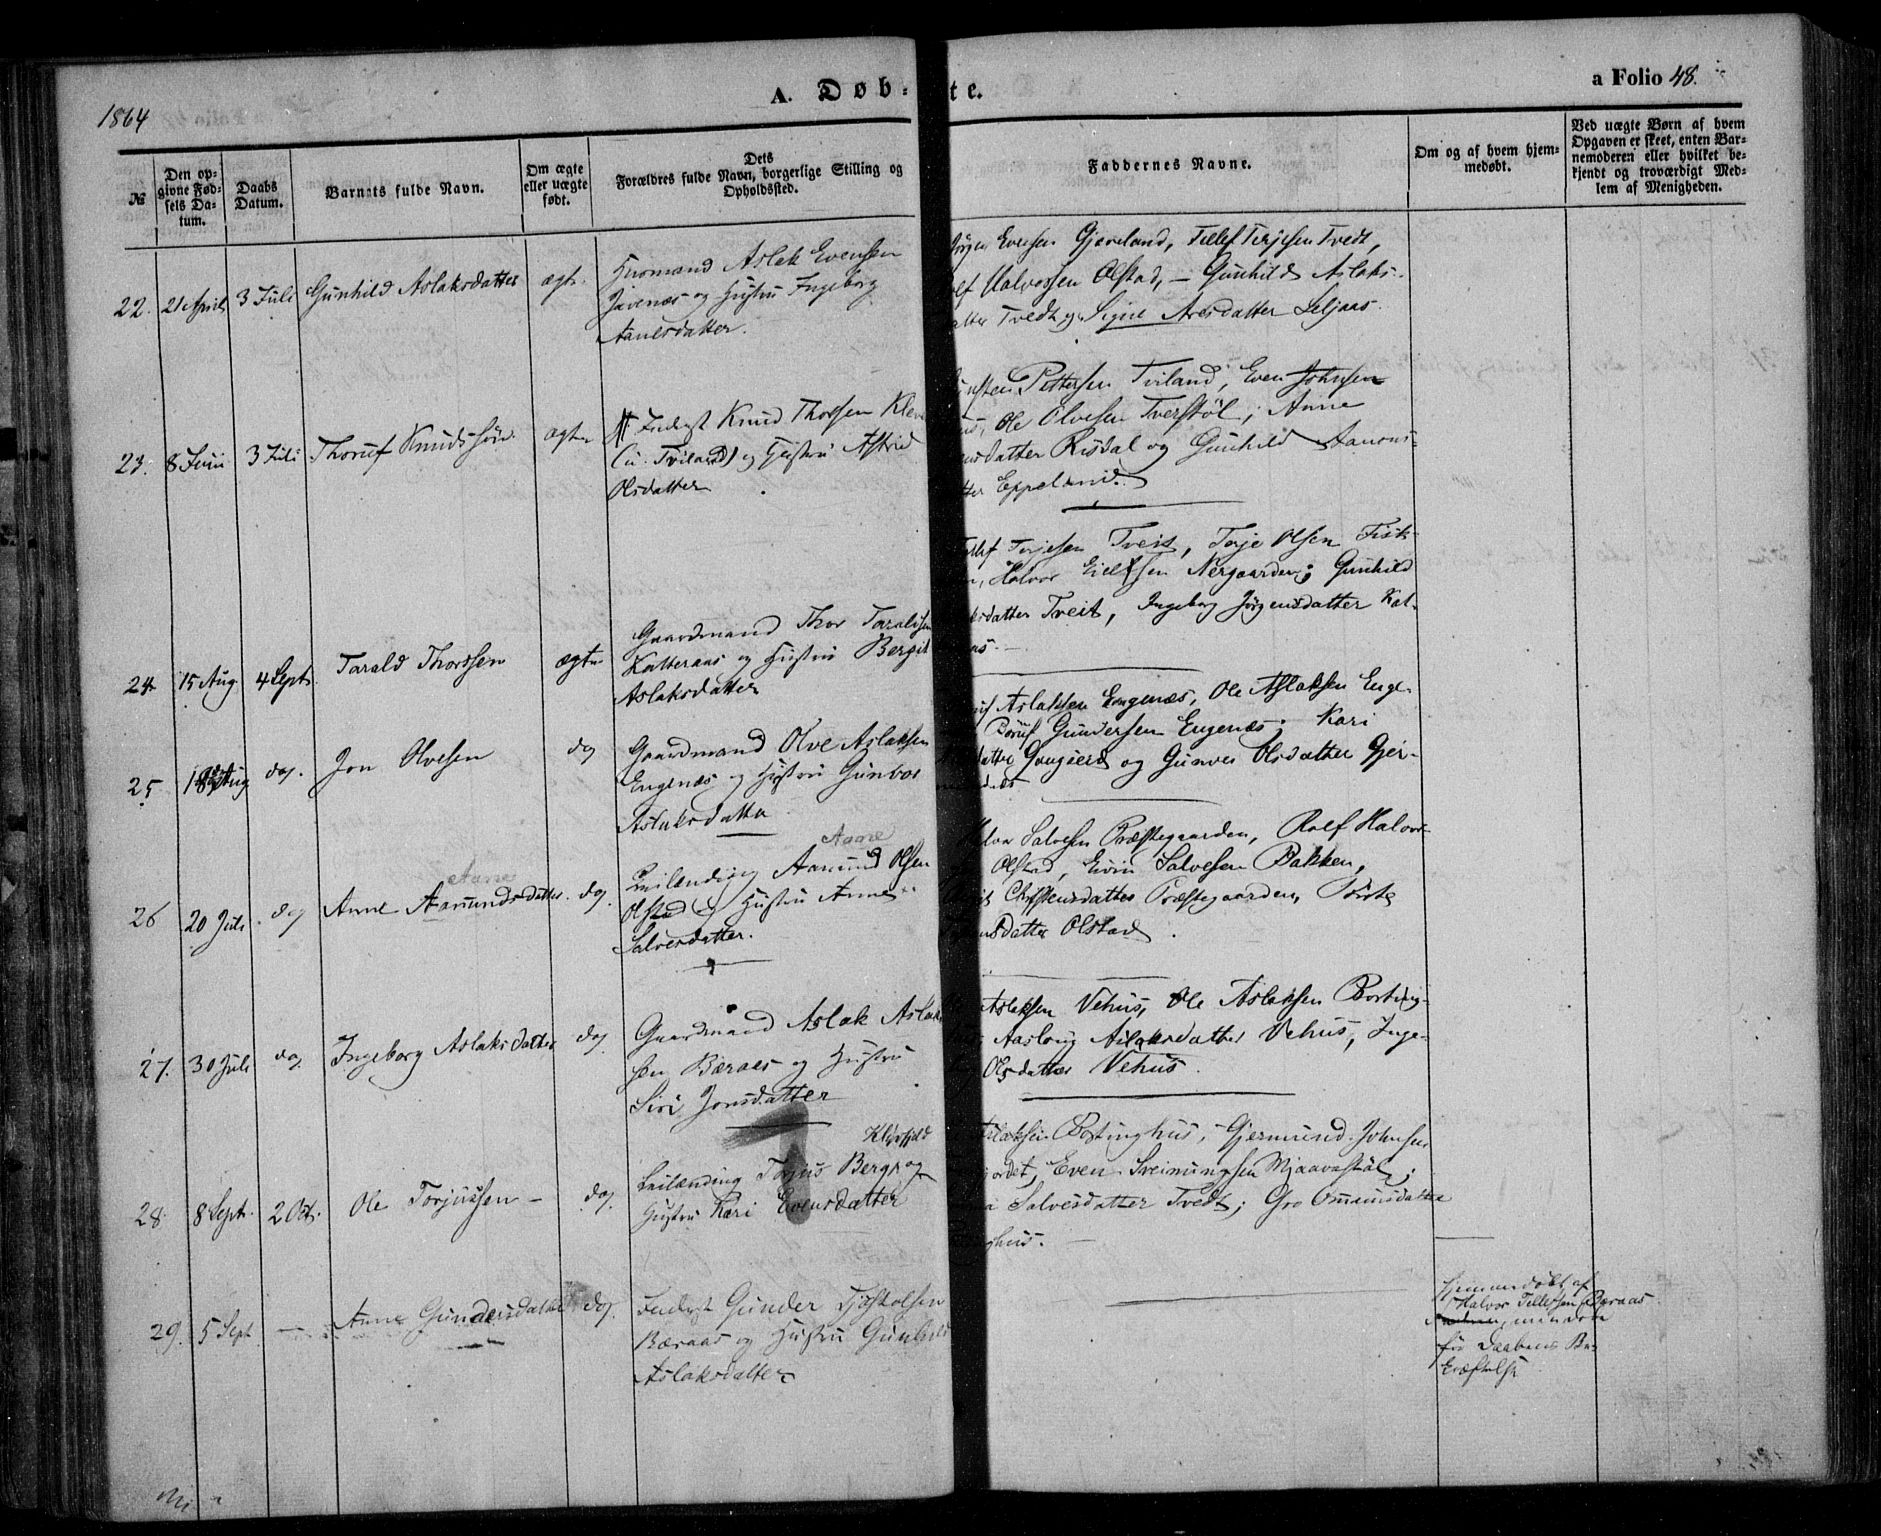 1864
A. Døb-
te.
a Folio 48.
№
Den op-
givne Fød-
sels Da-
tum.
Daabs
Datum.
Barnets fulde Navn.
Om ægte
eller uægte
født.
Dets
Forældres fulde Navn, borgerlige Stilling og
Opholdssted.
Faddernes Navne.
Om og af hvem hjem-
medøbt.
Ved uægte Børn af hvem
Opgaven er skeet, enten Bar-
nemoderen eller hvilket be-
kjendt og troværdigt Med-
lem af Menigheden.
22. 21 April 3 Juli Gunhild Aslaksdatter ægte
Huusmand Aslak Evensen
og Hustru Ingeborg
Evensen Gjæveland, Tellef Terjesen Tvedt,
Halvorsen Olstad, – Gunhild Aslaks-
Tvedt og Signe Aresdatter Liljaas.
23. 8 Juni 3 Juli Thoruf Knudssøn ægte
Inderst Knud Thorsen Kleve
(u. Tviland) og Hustru Astrid
Olsdatter
Pettersen Tviland, Even Johnsen
Ole Olvesen Tverstøl; Anne
datter Risdal og Gunhild Aanons-
Eppeland.
24 15 Aug 4 Sept. Tarald Thorssen ægte
Gaardmand Thor Taraldsen
Katteraas og Hustru Bergit
Aslaksdatter
Terjesen Tveit, Terje Olsen Fisk-
Halvor Nergaarden; Gunhild
datter Tveit, Ingeborg Jørgensdatter Kat-
25 18 Aug do. Jon Olvesen do
Gaardmand Olve Aslaksen
Engenæs og Hustru Gunbor
Aslaksdatter
Aslaksen Engenæs, Ole Aslaksen Enge-
Gundersen Engenæs; Kari
og Gunvor Olsdatter Gjer-
26 20 Juli do Anne Aamundsdatter do.
Aane
Aane
Leilending Aamund Olsen
Olstad og Hustru Anne
Salvesdatter.
Salvesen Præstegaarden, Rolf Halvor-
Olstad, Evin Salvesen Bakken,
Christensdatter Præstegaarden, Torte
datter Olstad.
27. 30 Juli do. Ingeborg Aslaksdatter do
Gaardmand Aslak Aslak-
sen Bæraas og Hustru
Siri Jonsdatter
Aslaksen Vehus, Ole Aslaksen Borting-
Aaslaug Aslaksdatter Vehus, Inge-
Olsdatter Vehus.
28. 8 Sept. 2 Oct. Ole Torjussen – do.
Leilending Torjus Berge og
Hustru Kari Evensdatter
Aslaksen Bortinghus, Gjermund Johnsen
Even Sveinungsen Mjaavastøl;
Salvesdatter Tvedt; Gro Omunsdatter
29. 5 Sept – Anne Gundersdatter do.
Inderst Gunder
Bæraas og Hustru Gunhild
Aslaksdatter
Hjemmedøbt af
Halvor Tellefsen Bæraas
men døde
før Daabens Be-
kræftelse